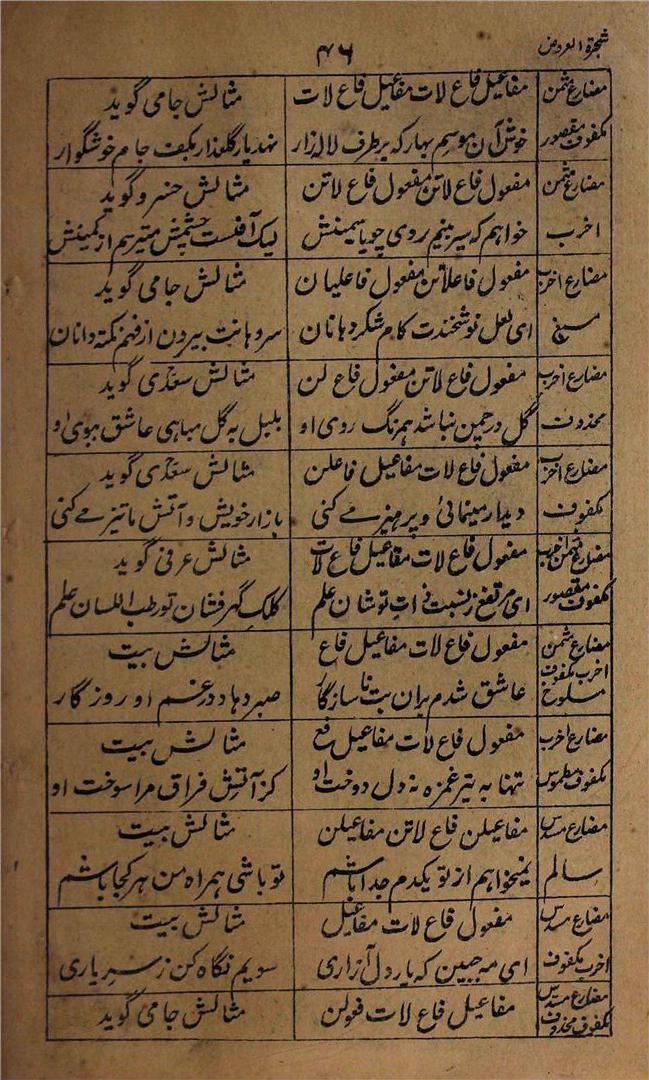 شجرة العروض
۴۶
مضارع مثمن مفاعیل فاع لات مفاعیل فاع لات مثالش جامی گوید
مکفوف مقصور خوش آن موسم بہار کہ بر طرف لالہ زار نہد یار گلعذار بکف جام خوشگوار
مضارع مثمن مفعول فاع لاتن مفعول فاع لاتن مثالش خسرو گوید
اخرب خواہم کہ سیر بینم روی چو یاسمینش لیک آفتست چشمش میترسم از کمینش
مضارع اخرب مفعول فاعلاتن مفعول فاعلیان مثالش جامی گوید
مسبغ ای لعل نوشخندت کام شکر دہانان سر دہانت بیرون از فہم نکتہ دانان
مضارع اخرب مفعول فاع لاتن مفعول فاع لن مثالش سعدی گوید
محذوف گل در چمن نباشد ہمرنگ روی او بلبل بہ گل مباہی عاشق ببوی او
مضارع اخرب مفعول فاع لات مفاعیل فاعلن مثالش سعدی گوید
مکفوف دیدار مینمائی و پرہیز مے کنی بازار خویش و آتش ما تیز مے کنی
مضارع مثمن اخرب مفعول فاع لات مفاعیل فاع لات مثالش عرفی گوید
مکفوف مقصور ای مرتفع ز نسبت ذات تو شان علم کلک گہر فشان تو رطب اللسان علم
مضارع مثمن مفعول فاع لات مفاعیل فاع مثالش بیت
اخرب مکفوف مسلوخ عاشق شدم بران بت ناسازگار صبر دہاد در غم او روزگار
مضارع اخرب مفعول فاع لات مفاعیل فع مثالش بیت
مکفوف مطموس تنہا بہ تیر غمزہ نہ دل دوخت او کز آتش فراق مرا سوخت او
مضارع مسدس مفاعیلن فاع لاتن مفاعیلن مثالش بیت
سالم نمیخواہم از تو یکدم جدا باشم تو باشی ہمراہ من ہر کجا باشم
مضارع مسدس مفعول فاع لات مفاعیل مثالش بیت
اخرب مکفوف ای مہ جبین کہ یار دل آزاری سویم نگاہ کن ز سر یاری
مضارع مسدس مفاعیل فاع لات فعولن مثالش جامی گوید
مکفوف محذوف